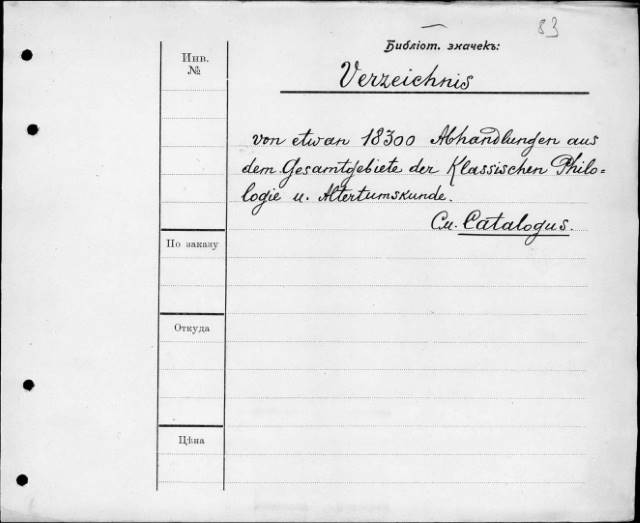 83
Библіот. значекъ:
Инв.
№
Verzeichnis
von etwan 18300 Abhandlungen aus
dem Gesamtgebiete der Klassischen Philo=
logie u. Altertumskunde.
См. Catalogus.
По заказу
Откуда
Цѣна